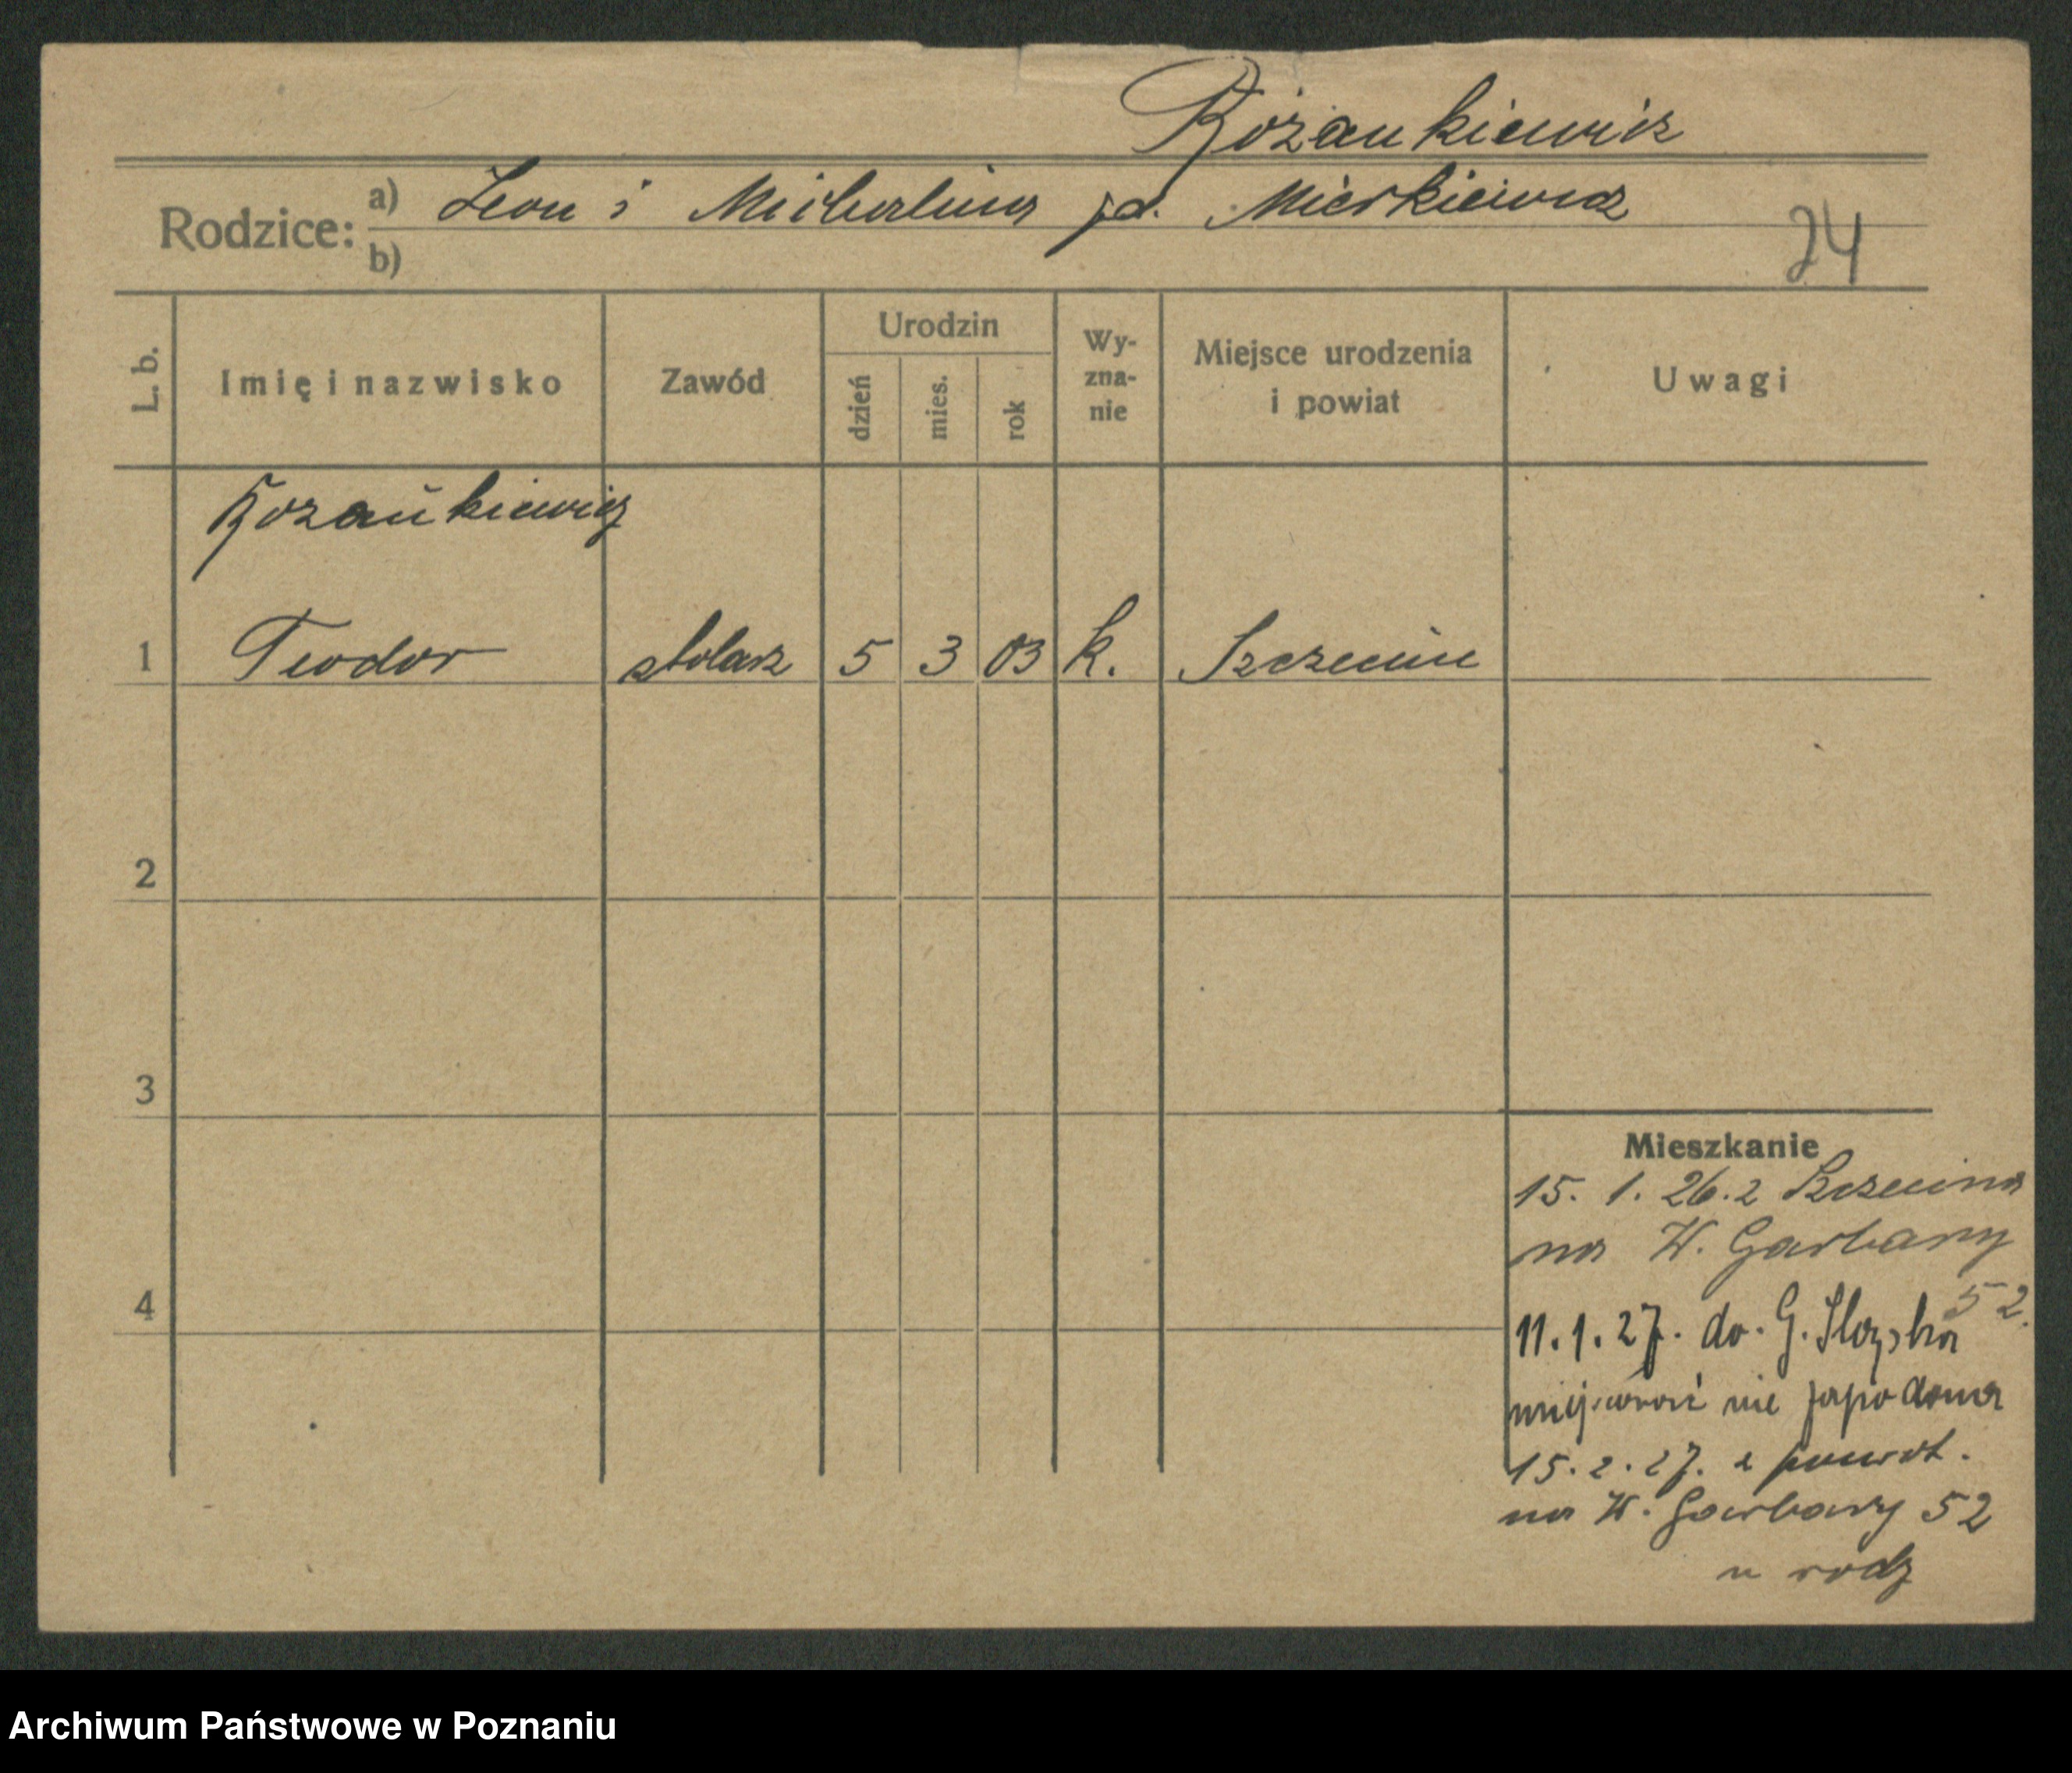 Rożankiewicz
Rodzice: a) Leon i Michalina zd. Mierkiewicz
b)
24
L. b.
Imię i nazwisko
Zawód
Urodzin
dzień
mies.
rok
Wy-
zna-
nie
Miejsce urodzenia
i powiat
Uwagi
Rozańkiewicz
1 Teodor stolarz 5 3 03 k. Szczecin
2
3
4
Mieszkanie
15. 1. 26. z Szczecina
na W. Garbary
52.
11.1.27. do G. Śląska
miejscowość nie zapodana
15.2.27. z powrot.
na W. Garbary 52
u rodz
Archiwum Państwowe w Poznaniu